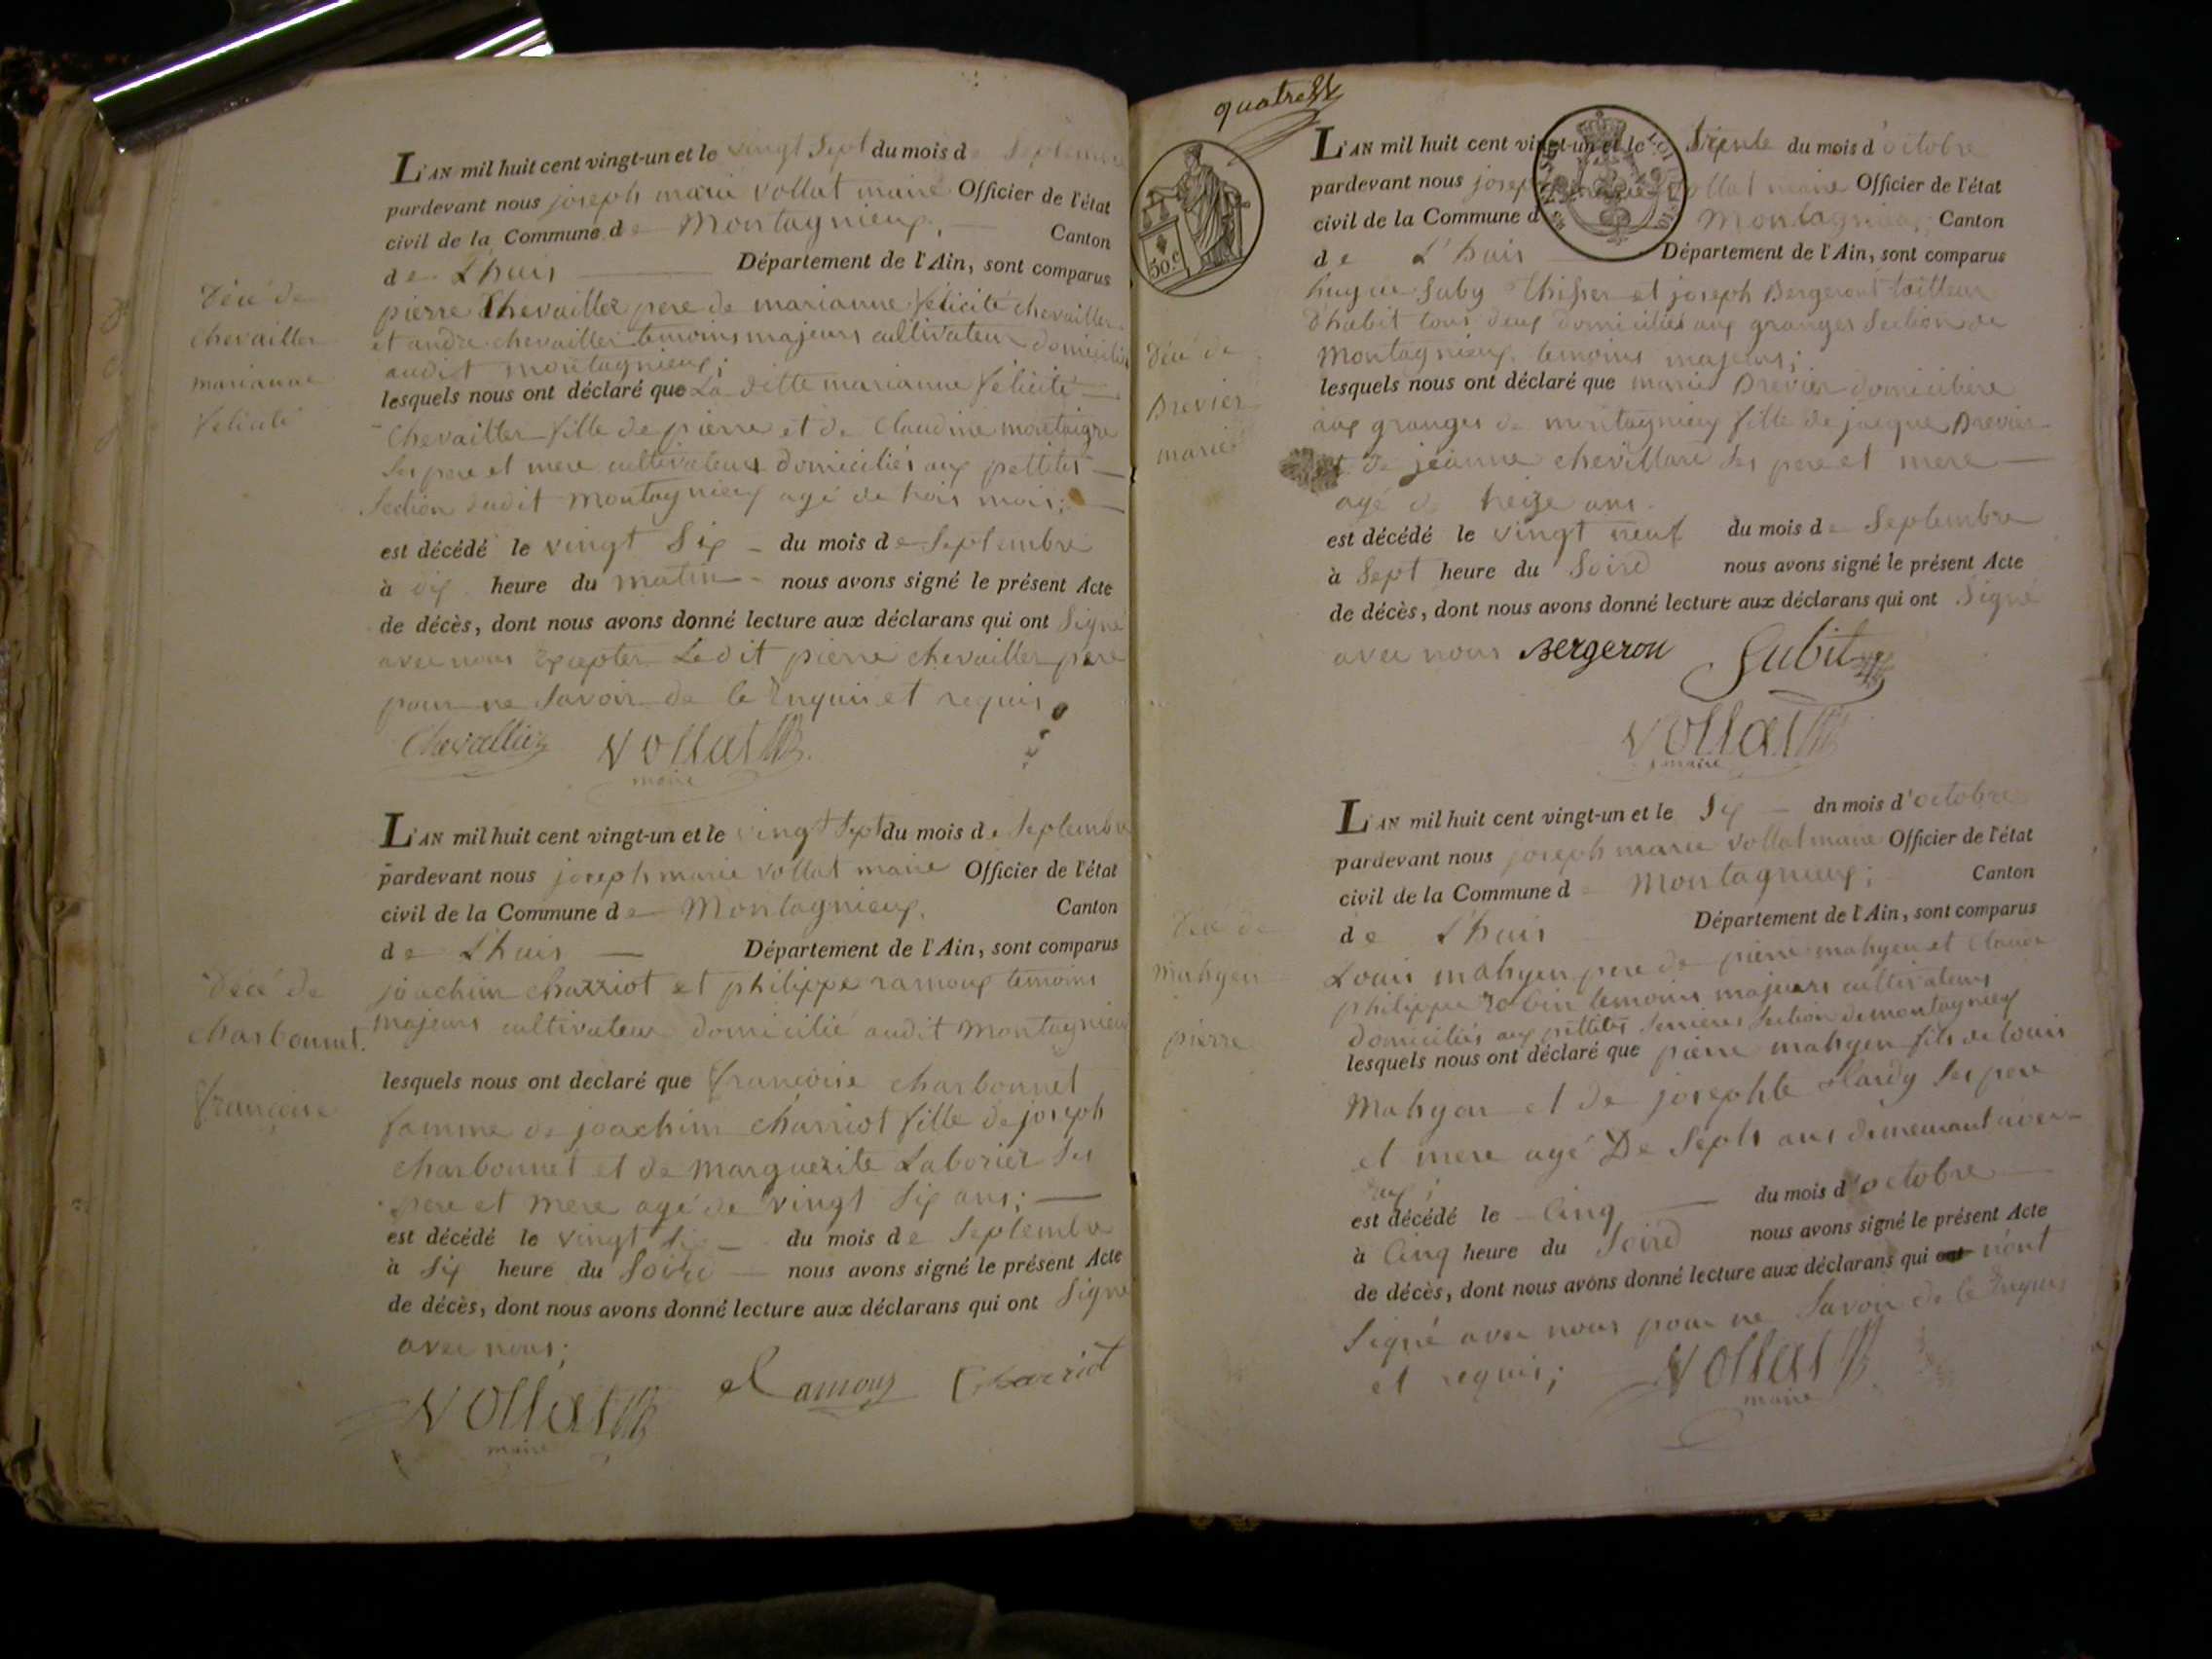 L'AN mil huit cent vingt-un et le vingt sept du mois de Septembre
pardevant nous joseph marie vollat maire Officier de l'état
civil de la Commune de Montagnieux, Canton
de L'huis Département de l'Ain, sont comparus
pierre Chevailler pere de marianne félicité chevailler
et andré chevailler temoins majeurs cultivateur domicilié
audit montagnieux;
lesquels nous ont déclaré que La ditte marianne félicité
Chevailler fille de pierre et de Claudine montaigre
Ses pere et mere cultivateurs domiciliés aux pettites
Section dudit Montagnieux agé de trois mois;
est décédé le vingt Six du mois de Septembre
à dix heure du matin nous avons signé le présent Acte
de décès, dont nous avons donné lecture aux déclarans qui ont Signé
avec nous Excepter Ledit pierre chevailler pere
pour ne Savoir de le Enquis et requis
Chevallier Vollat
maire
décé de
chevailler
marianne
félicité
L'AN mil huit cent vingt-un et le vingt Sept du mois de Septembre
pardevant nous joseph marie vollat maire Officier de l'état
civil de la Commune de Montagnieux, Canton
de L'huis Département de l'Ain, sont comparus
joachim charriot et philippe ramoux temoins
majeurs cultivateur domicilié audit Montagnieux
lesquels nous ont declaré que françoise charbonnet
famme de joachim charriot fille de joseph
charbonnet et de Marguerite Laborier Ses
pere et mere agé de vingt Six ans;
est décédé le vingt Six du mois de Septembre
à Six heure du Soird nous avons signé le présent Acte
de décès, dont nous avons donné lecture aux déclarans qui ont Signé
avec nous;
Vollat Ramoux Charriot
maire
décé de
charbonnet
françoise
quatre
50.c
L'AN mil huit cent vingt-un et le trente du mois d'octobre
pardevant nous joseph marie vollat maire Officier de l'état
civil de la Commune de Montagnieux, Canton
de L'huis Département de l'Ain, sont comparus
hugue Guby thisser et joseph Bergeront tailleur
d'habit tous deux domiciliés aux granges Section de
Montagnieux, temoins majeurs;
lesquels nous ont déclaré que marie Drevier domicilière
aux granges de montagnieux fille de jacque Drevier
et de jeanne chevillard Ses pere et mere
agé de treize ans
est décédé le vingt neuf du mois de Septembre
à Sept heure du Soird nous avons signé le présent Acte
de décès, dont nous avons donné lecture aux déclarans qui ont Signé
avec nous Bergeron Gubit
Vollat
maire
décé de
Drevier
marie
L'AN mil huit cent vingt-un et le Six dn mois d'octobre
pardevant nous joseph marie vollat maire Officier de l'état
civil de la Commune de Montagnieux; Canton
de L'huis Département de l'Ain, sont comparus
Louis mahyeu pere de pierre mahyeu et Claude
philippe robin temoins majeurs cultivateurs
domiciliés aux pettites Serrieres Section de montagnieux
lesquels nous ont déclaré que pierre mahyeu fils de louis
Mahyeu et de josephte Hardy Ses pere
et mere agé De Septs ans demeurant avec
eux;
est décédé le Cinq du mois d'octobre
à Cinq heure du Soird nous avons signé le présent Acte
de décès, dont nous avons donné lecture aux déclarans qui ont n'ont
Signé avec nous pour ne Savoir de le Enquis
et requis; Vollat
maire
décé de
mahyeu
pierre